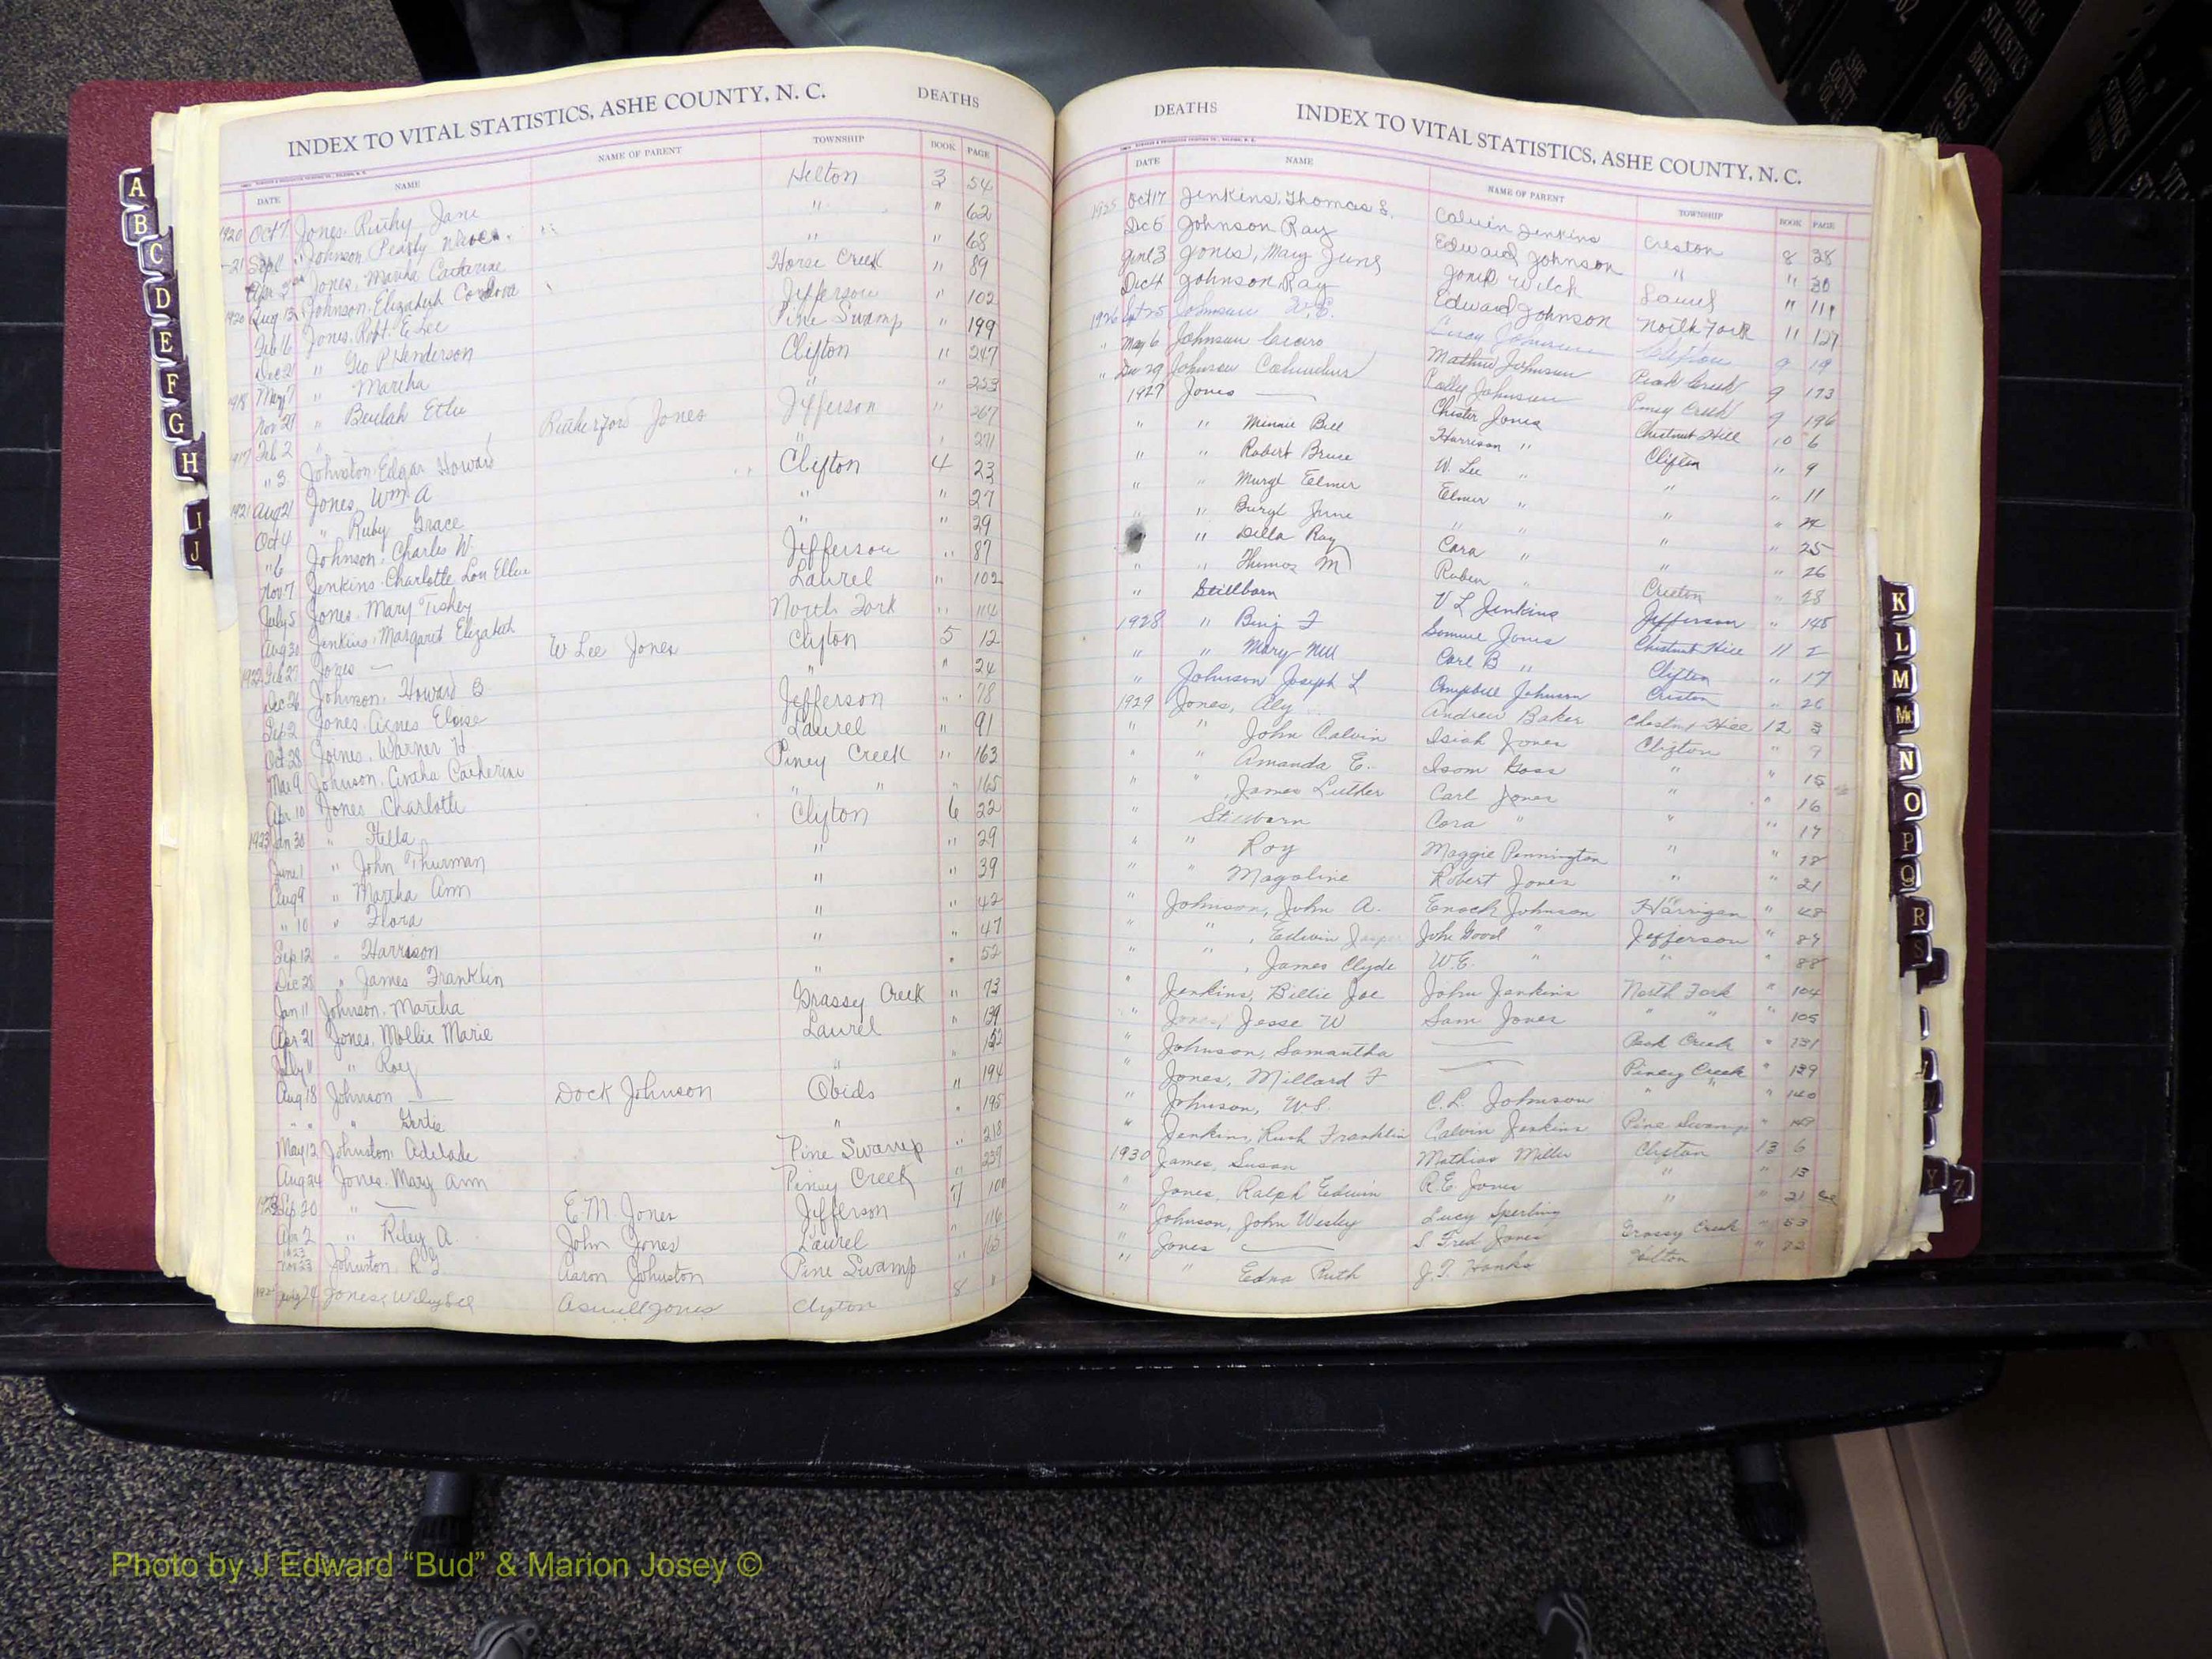 INDEX TO VITAL STATISTICS, ASHE COUNTY, N. C. DEATHS
DATE NAME NAME OF PARENT TOWNSHIP BOOK PAGE
1920 Oct 7 Jones, Jane Helton 3 54
Johnson, " " 62
Jones, Martha Catherine " " 68
1920 Aug 13 Johnson, Elizabeth Horse Creek " 89
Feb 16 Jones, Robt. E Lee Jefferson " 102
Dec 21 " Geo P Henderson Pine Swamp " 199
1918 May 7 " Martha Clifton " 247
Nov 27 " Beulah " " 253
1917 Feb 2 " Rutherford Jones Jefferson " 267
" 3 Johnston, Edgar Howard " " 271
1921 Aug 21 Jones, Wm. A Clifton 4 23
Oct 4 " Ruby Grace " " 27
" 6 Johnson, Charles W. " " 29
Nov 7 Jenkins, Charlotte Lou Jefferson " 87
July 5 Jones, Mary Laurel " 102
Aug 30 Jenkins, Margaret Elizabeth North Fork " 114
1922 Feb 27 Jones — W Lee Jones Clifton 5 12
Dec 26 Johnson, Howard B " " 24
Sep 2 Jones, Agnes Eloise Jefferson " 78
Oct 28 Joines, Warner H Laurel " 91
Mar 9 Johnson, Catherine Piney Creek " 163
Apr 10 Jones, Charlotte " " " 165
1923 Jan 30 " Clifton 6 22
June 1 " John Thurman " " 29
Aug 9 " Martha Ann " " 39
" 10 " Flora " " 42
Sep 12 " Harrison " " 47
Dec 28 " James Franklin " " 52
Jan 11 Johnson, Martha Grassy Creek " 73
Apr 21 Jones, Mollie Marie Laurel " 139
July 11 " Roy " " 152
Aug 18 Johnson — Dock Johnson Obids " 194
" " " Gertie " " 195
May 12 Johnston, Adelade Pine Swamp " 218
Aug 24 Jones, Mary Ann Piney Creek " 239
Sep 20 " — E M Jones Jefferson 7 100
Apr 2 " Riley A John Jones Laurel " 116
1923 Nov 23 Johnston, R Aaron Johnston Pine Swamp " 165
Jones, Jones Clifton 8 "
DEATHS INDEX TO VITAL STATISTICS, ASHE COUNTY, N. C.
DATE NAME NAME OF PARENT TOWNSHIP BOOK PAGE
1925 Oct 17 Jenkins, Thomas S. Calvin Jenkins Creston 8 28
Dec 5 Johnson Ray Edward Johnson " " 30
June 3 Jones, Mary June Laurel " 111
Dec 4 Johnson Ray Edward Johnson North Fork " 127
1926 Johnson Johnson Clifton 9 19
" May 6 Johnson Cicero Johnson Peak Creek 9 173
" Dec 29 Johnson Columbus Polly Johnson Piney Creek 9 196
1927 Jones — Chester Jones Chestnut Hill 10 6
" " Minnie Bell Harrison " Clifton " 9
" " Robert Bruce W. Lee " " " 11
" " Elmer Elmer " " "
" " June " " " " 25
" " Della Ray Cora " " " 26
" " M Ruben " Creston " 28
" Stillborn V L Jenkins Jefferson " 145
1928 " Benj F Jones Chestnut Hill 11
" " Mary Nell Carl B " Clifton " 17
" Johnson Joseph L Campbell Johnson Creston " 26
1929 Jones, Aly Andrew Baker Chestnut Hill 12 3
" " John Calvin Isiah Jones Clifton " 9
" " Amanda E. Isom Goss " " 15
" " James Luther Carl Jones " " 16
" Stillborn Cora " " " 17
" " Roy Maggie Pennington " " 18
" " Magoline Robert Jones " " 21
" Johnson, John A. Enoch Johnson " 48
" " , Edwin Jasper John Good " Jefferson " 87
" " , James Clyde W.E. " " " 88
" Jenkins, Billie Joe John Jenkins North Fork " 104
" Jones, Jesse W Sam Jones " " " 105
" Johnson, Samantha — Peak Creek " 131
" Jones, Millard F — Piney Creek " 139
" Johnson, W.S. C.L. Johnson " " " 140
" Jenkins, Rush Franklin Calvin Jenkins Pine Swamp "
1930 James, Susan Mathias Miller Clifton 13 6
" Jones, Ralph Edwin R.E. Jones " " 13
" Johnson, John Wesley Lucy Sperling " " 21
" Jones — S Fred Jones Grassy Creek " 53
" " Edna Ruth J.T. Hanks Helton "
A
B
C
D
E
F
G
H
I
J
K
L
M
Mc
N
O
P
Q
R
S
Y
Z
VITAL STATISTICS BIRTHS 1963
Photo by J Edward “Bud” & Marion Josey ©